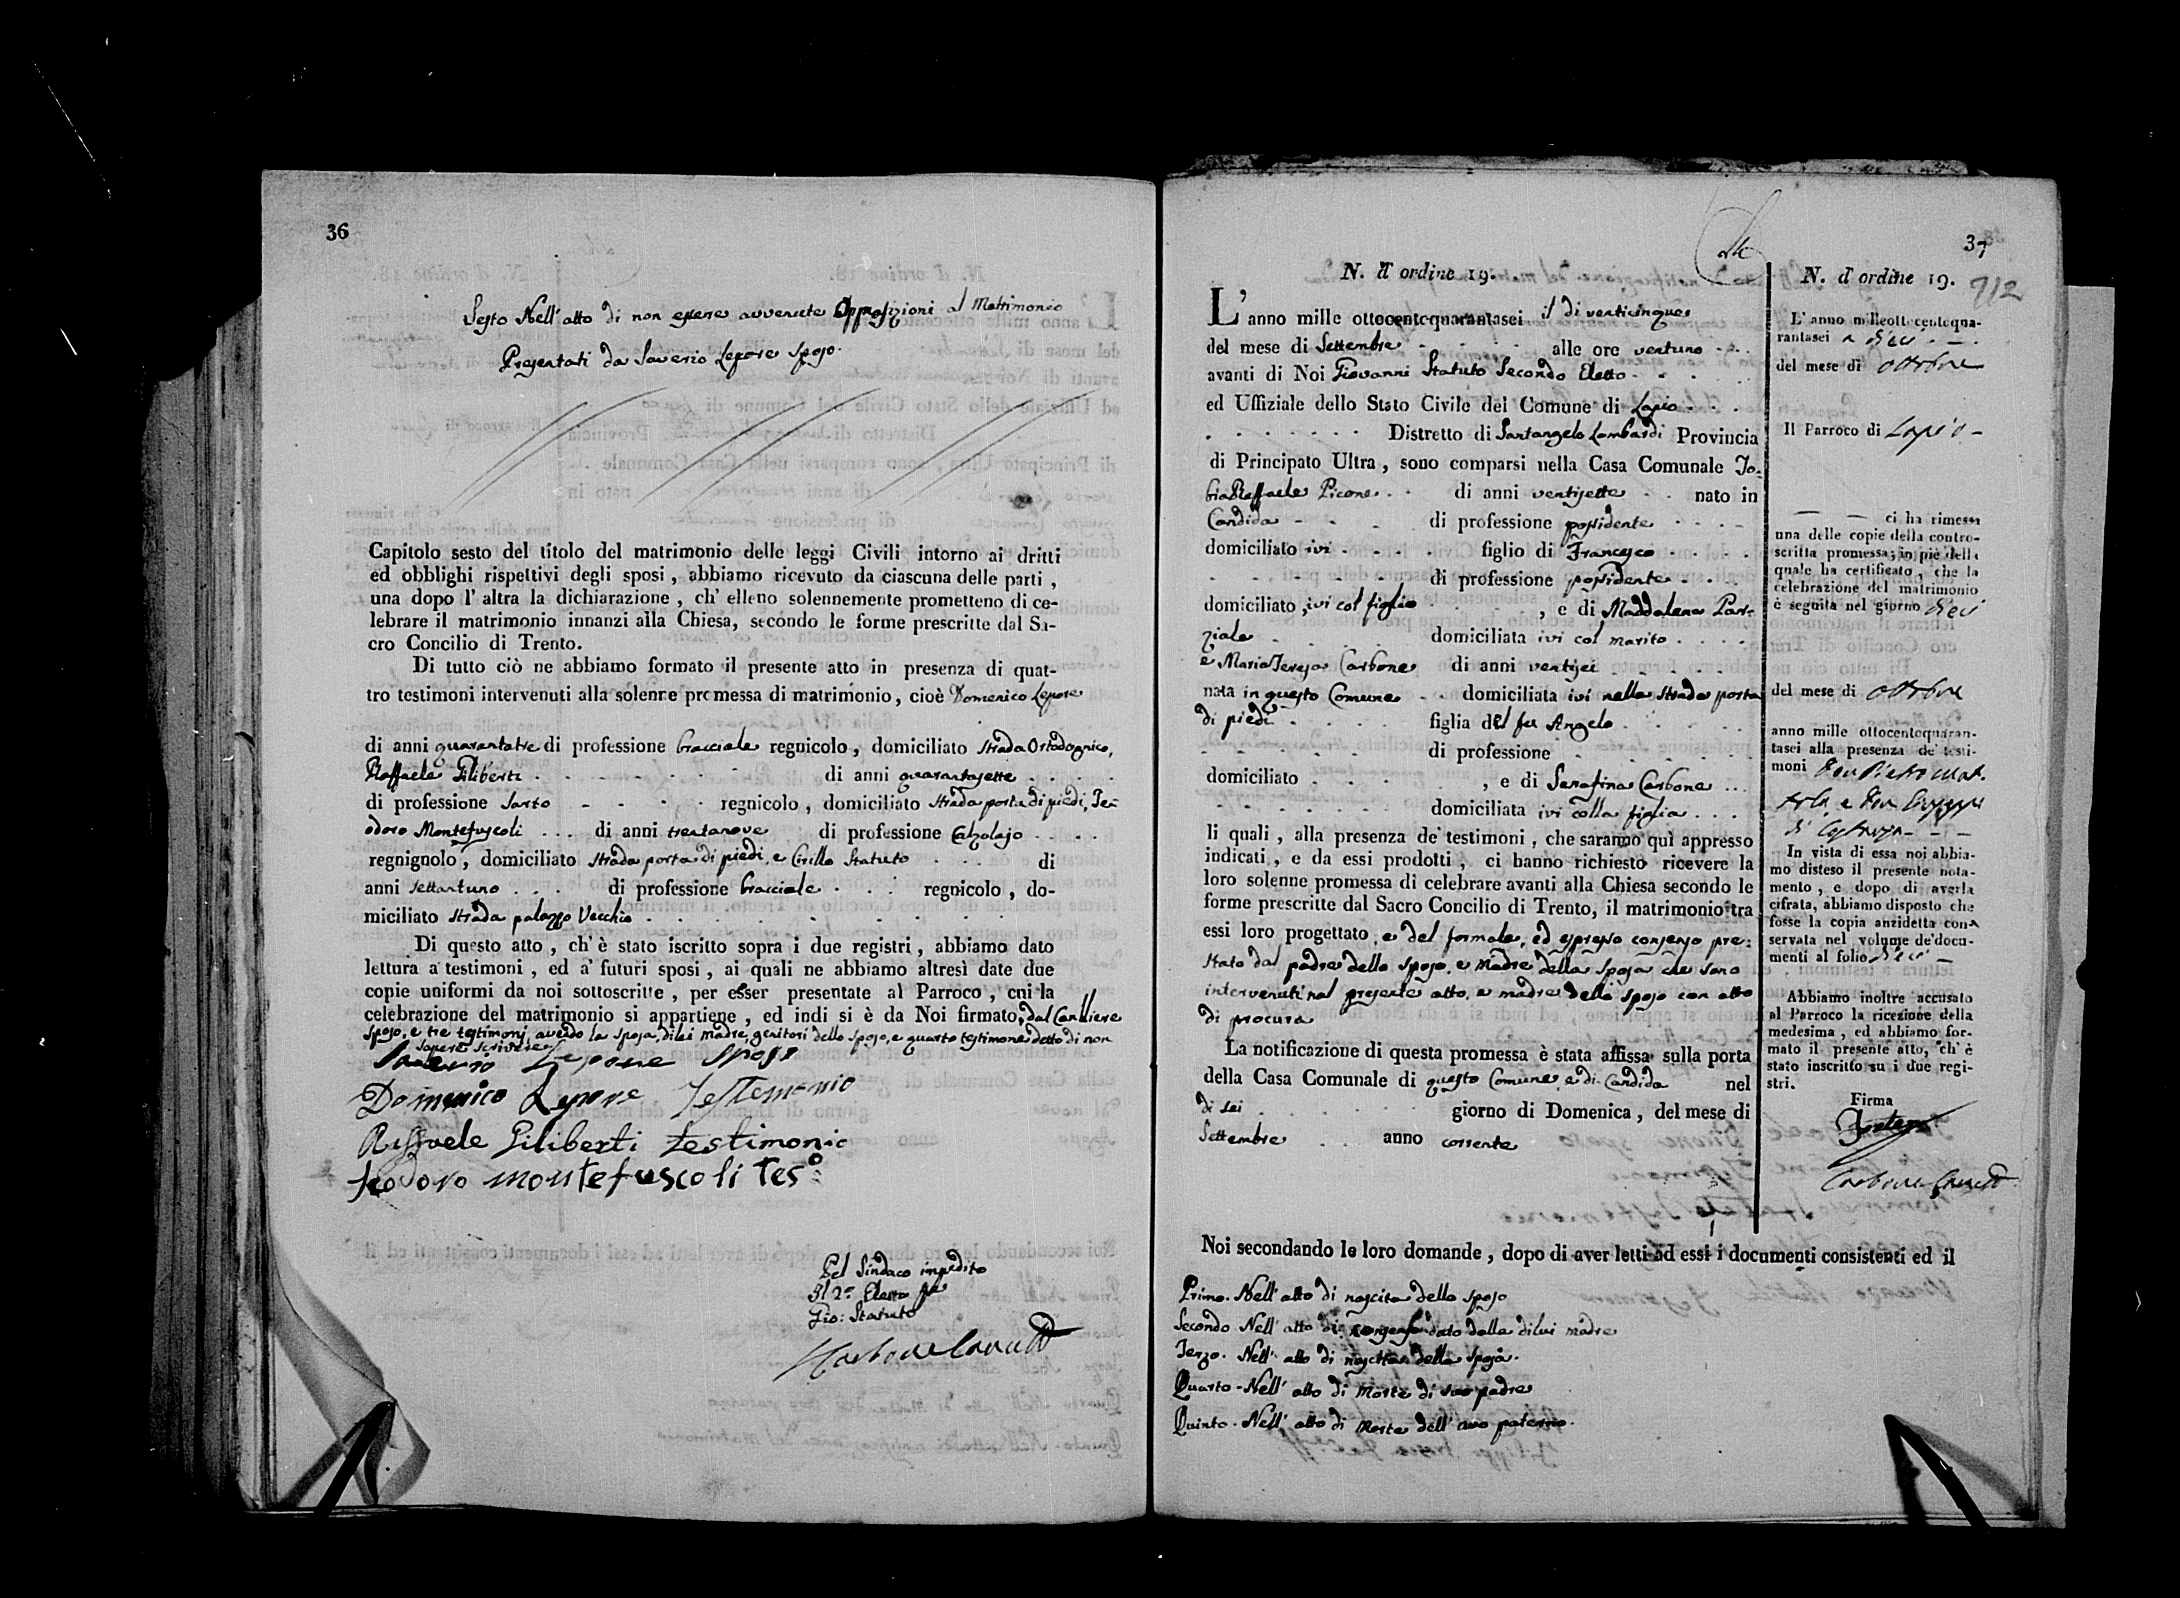 36
Sesto Nell'atto di non essere avvenute Opposizioni al Matrimonio
Presentati da Saverio Lepore sposo.
Capitolo sesto del titolo del matrimonio delle leggi Civili intorno ai dritti
ed obblighi rispettivi degli sposi, abbiamo ricevuto da ciascuna delle parti,
una dopo l'altra la dichiarazione, ch'elleno solennemente promettono di ce-
lebrare il matrimonio innanzi alla Chiesa, secondo le forme prescritte dal Sa-
cro Concilio di Trento.
Di tutto ciò ne abbiamo formato il presente atto in presenza di quat-
tro testimoni intervenuti alla solenne promessa di matrimonio, cioè Domenico Lepore
di anni quarantatre di professione bracciale regnicolo, domiciliato Strada Ortodognico,
Raffaele Filiberti di anni quarantasette
di professione Sarto regnicolo, domiciliato Strada porta di piedi, Te=
odoro Montefuscoli di anni trentanove di professione Calzolajo
regnignolo, domiciliato Strada porta di piedi, e Cirillo Statuto di
anni settantuno di professione bracciale regnicolo, do-
miciliato Strada palazzo Vecchio
Di questo atto, ch'è stato iscritto sopra i due registri, abbiamo dato
lettura a' testimoni, ed a' futuri sposi, ai quali ne abbiamo altresì date due
copie uniformi da noi sottoscritte, per esser presentate al Parroco, cui la
celebrazione del matrimonio si appartiene, ed indi si è da Noi firmato, dal Cancelliere
Sposo, e tre testimonj, avendo la sposa, di lei madre, genitori dello sposo, e quarto testimone detto di non
sapere scrivere
Saverio Lepore Sposo
Domenico Lepore Testemonio
Raffaele Filiberti testimonio
Teodoro montefuscoli Tes.o
Pel Sindaco impedito
Il 2.o Eletto
Gio: Statuto
Carbone
37
N. d'ordine 19.
L'anno mille ottocentoquarantasei il di venticinque
del mese di Settembre alle ore ventuno
avanti di Noi Giovanni Statuto Secondo Eletto
ed Uffiziale dello Stato Civile del Comune di Lapio
Distretto di Santangelo Lombardi Provincia
di Principato Ultra, sono comparsi nella Casa Comunale To-
bia Raffaele Picone di anni ventisette nato in
Candida di professione possidente
domiciliato ivi figlio di Francesco
di professione possidente
domiciliato, ivi col figlio, e di Maddalena Par-
ziale domiciliata ivi col marito
e Maria Teresa Carbone di anni ventisei
nata in questo Comune domiciliata ivi nella Strada porta
di piedi figlia del fu Angelo
di professione
domiciliato, e di Serafina Carbone
domiciliata ivi colla figlia
li quali, alla presenza de' testimoni, che saranno quì appresso
indicati, e da essi prodotti, ci hanno richiesto ricevere la
loro solenne promessa di celebrare avanti alla Chiesa secondo le
forme prescritte dal Sacro Concilio di Trento, il matrimonio tra
essi loro progettato, e del formale, ed espresso consenso pre=
stato dal padre dello sposo, e madre della sposa che sono
intervenuti nel presente atto, e madre dello sposo con atto
di procura
La notificazione di questa promessa è stata affissa sulla porta
della Casa Comunale di questo Comune, e di Candida nel
di sei giorno di Domenica, del mese di
Settembre anno corrente
N. d'ordine 19.
912
L'anno milleottocentoqua-
rantasei a dieci
del mese di ottobre
Il Parroco di Lapio
ci ha rimessa
una delle copie della contro-
scritta promessa; in piè della
quale ha certificato, che la
celebrazione del matrimonio
è seguita nel giorno dieci
del mese di ottobre
anno mille ottocentoquaran-
tasei alla presenza de' testi-
moni Don Pietro
e Don Giuseppe
In vista di essa noi abbia-
mo disteso il presente nota-
mento, e dopo di averla
cifrata, abbiamo disposto che
fosse la copia anzidetta con-
servata nel volume de' docu-
menti al folio dieci
Abbiamo inoltre accusato
al Parroco la ricezione della
medesima, ed abbiamo for-
mato il presente atto, ch'è
stato inscritto su i due regi-
stri.
Firma
Carbone
Noi secondando le loro domande, dopo di aver letti ad essi i documenti consistenti ed il
Primo. Nell'atto di nascita dello sposo
Secondo Nell'atto di consenso dato dalla di lui madre
Terzo. Nell'atto di nascita della sposa.
Quarto. Nell'atto di Morte di suo padre
Quinto. Nell'atto di Morte dell'avo paterno.